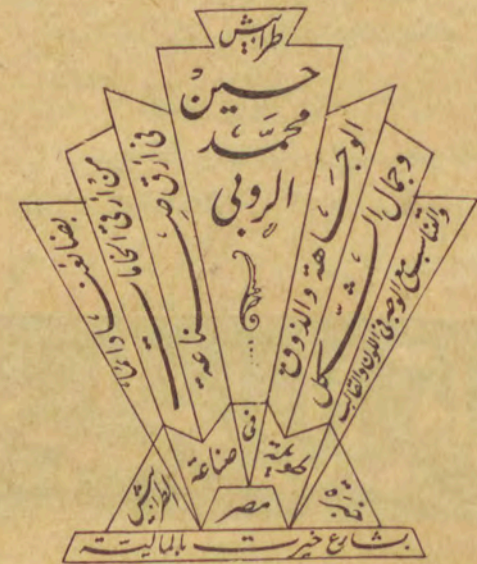 طرابيش
حسين
محمد
الروبي
الوجاهة والذوق
وجمال الشكل
والتناسب مع الوجه فى اللون والقالب
فى أرقى صناعة
من أرقى الخامات
فى
صناعة
الطرابيش
مصر
بشارع خيرت بالمالية